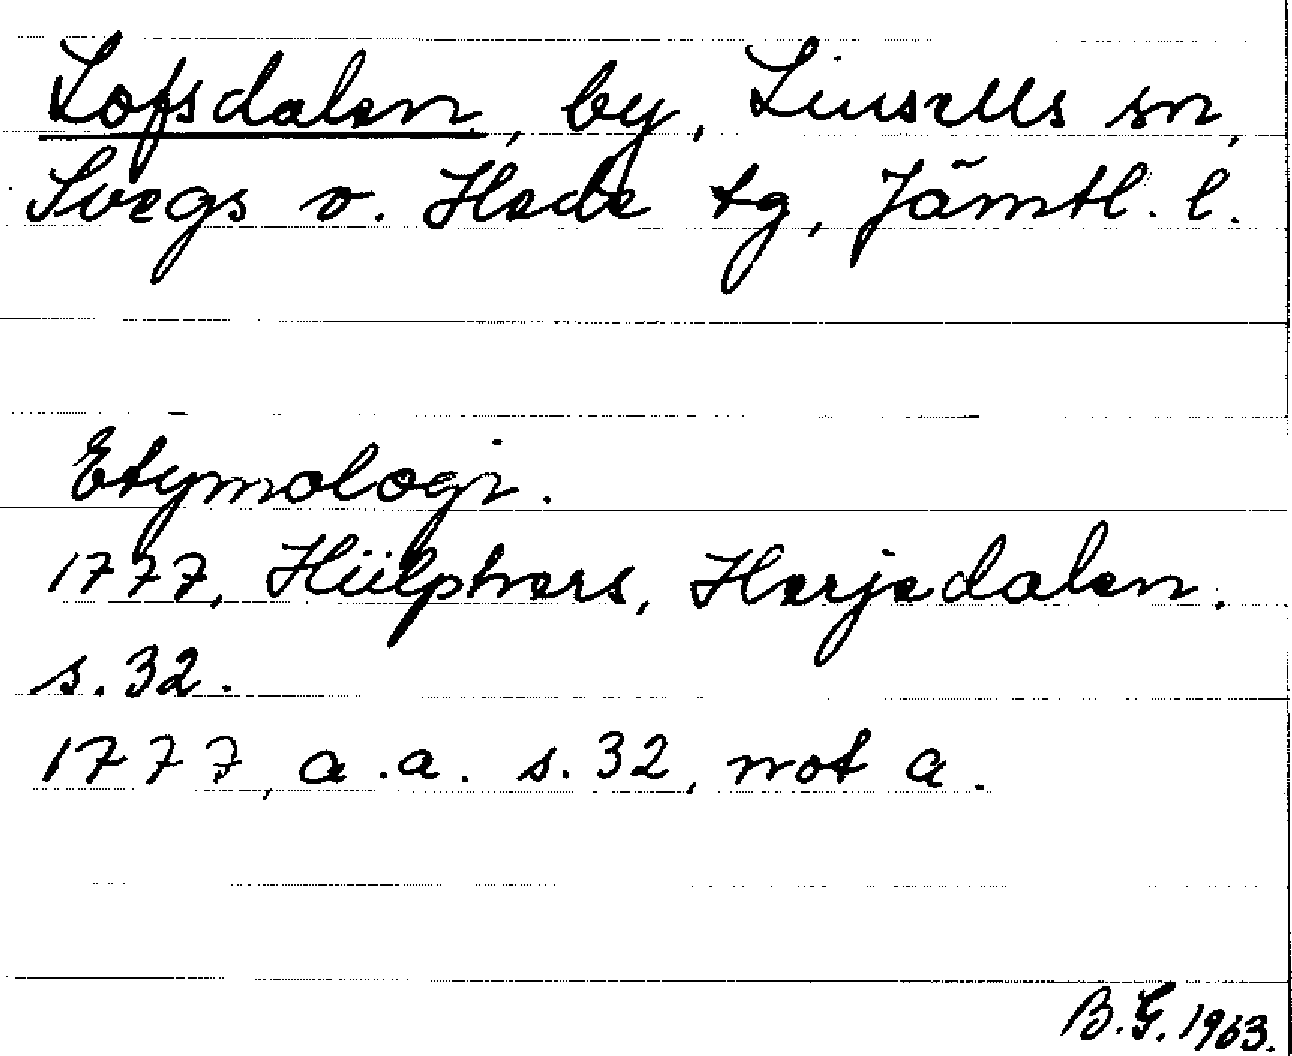 Lofsdalen, by, Linsells sn,
Svegs o. Hede tg, Jämtl. l.
Etymologi.
1777, Hülphers, Herjedalen.
s. 32.
1777, a.a. s. 32, not a.
B.G. 1963.